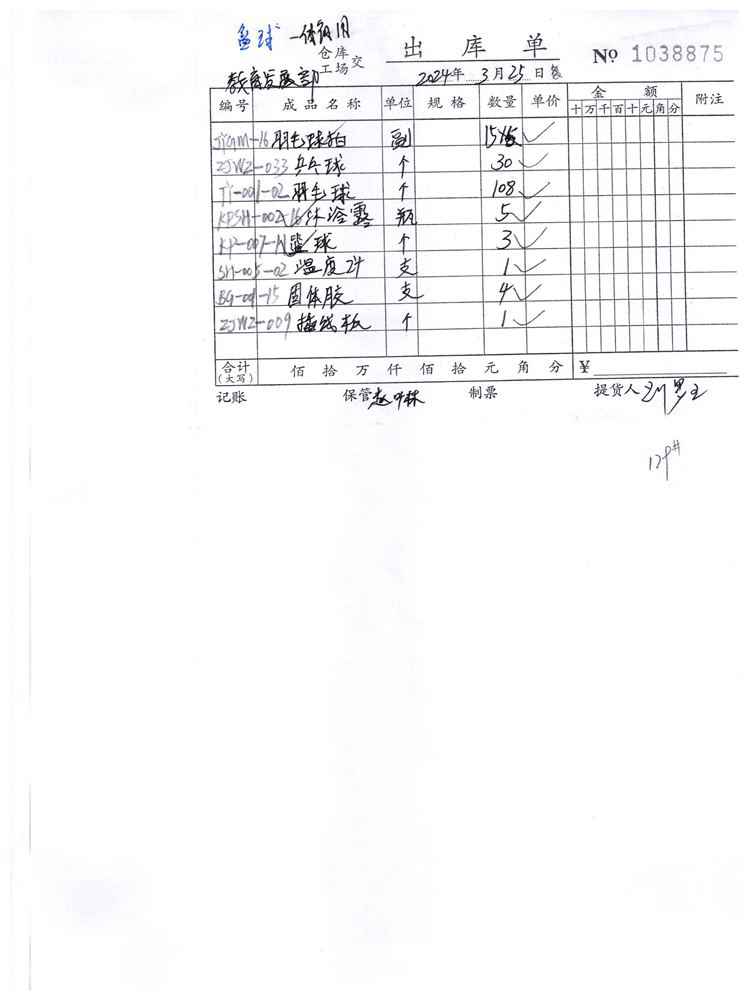 篮球 一体领用
仓库
工场交
出库单
№ 1038875
教育发展部
2024年 3月25日
编号 成品名称 单位 规格 数量 单价 金额 附注
十万千百十元角分
-16 羽毛球拍 副 15
ZJWZ-033 乒乓球 个 30
TY-001-02 羽毛球 个 108
KPSH-002 冷露 瓶 5
KP-007- 篮球 个 3
SH-005-02 温度计 支 1
BG-001-15 固体胶 支 4
ZJWZ-009 插线板 个 1
合计
(大写)
佰拾万仟佰拾元角分 ¥
记账 保管 制票 提货人